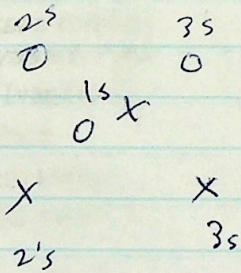 2s 3s
O O
1s
O X
X X
2's 3s